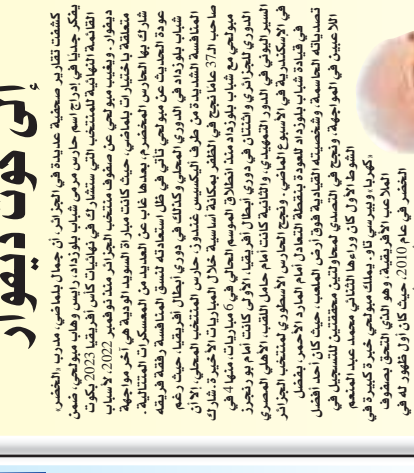 إلى كوت ديفوار
كشفت تقارير صحفية عديدة في الجزائر، أن جمال بلماضي، مدرب «الخضر»،
يفكر جديا في إدراج اسم حارس مرمى شباب بلوزداد، رايس وهاب مبولحي، ضمن
القائمة النهائية للمنتخب التي ستشارك في نهائيات كأس أفريقيا 2023 بكوت
ديفوار. ويغيب مبولحي عن صفوف منتخب الجزائر منذ نوفمبر 2022، لأسباب
متعلقة باختيارات بلماضي، حيث كانت مباراة السويد الودية هي آخر مواجهة
شارك بها الحارس المخضرم، بعدها غاب عن العديد من المعسكرات المتتالية.
عودة الحديث عن مبولحي تأتي في ظل استعادته لنسق المنافسة رفقة فريقه
شباب بلوزداد في الدوري المحلي وكذلك في دوري أبطال أفريقيا، حيث رغم
المنافسة الشديدة من طرف أليكسيس غندوز، حارس المنتخب المحلي، إلا أن
صاحب الـ37 عاما نجح في الظفر بمكانة أساسية خلال المباريات الأخيرة. شارك
مبولحي مع شباب بلوزداد منذ انطلاق الموسم الحالي في 6 مباريات، منها 4 في
الدوري الجزائري واثنتان في دوري أبطال أفريقيا، الأولى كانت أمام بو رنجرز
السيراليوني في الدور التمهيدي، والثانية كانت أمام حامل اللقب، الأهلي المصري
في الاسكندرية في الأسبوع الماضي. ونجح الحارس الأسطوري لمنتخب الجزائر
في قيادة شباب بلوزداد للعودة بنقطة التعادل أمام المارد الأحمر، بفضل
تصدياته الحاسمة، وشخصيته القيادية فوق أرض الملعب، حيث كان أحد أفضل
اللاعبين في المواجهة، ونجح في التصدي لمحاولتين محققتين للتسجيل في
الشوط الأول كان وراءها الثنائي محمد عبد المنعم
«كهربا»، وبيرسي تاو. يملك مبولحي خبرة كبيرة في
الملاعب الأفريقية، وهو الذي التحق بصفوف
الخضر في عام 2010، حيث كان أول ظهور له في